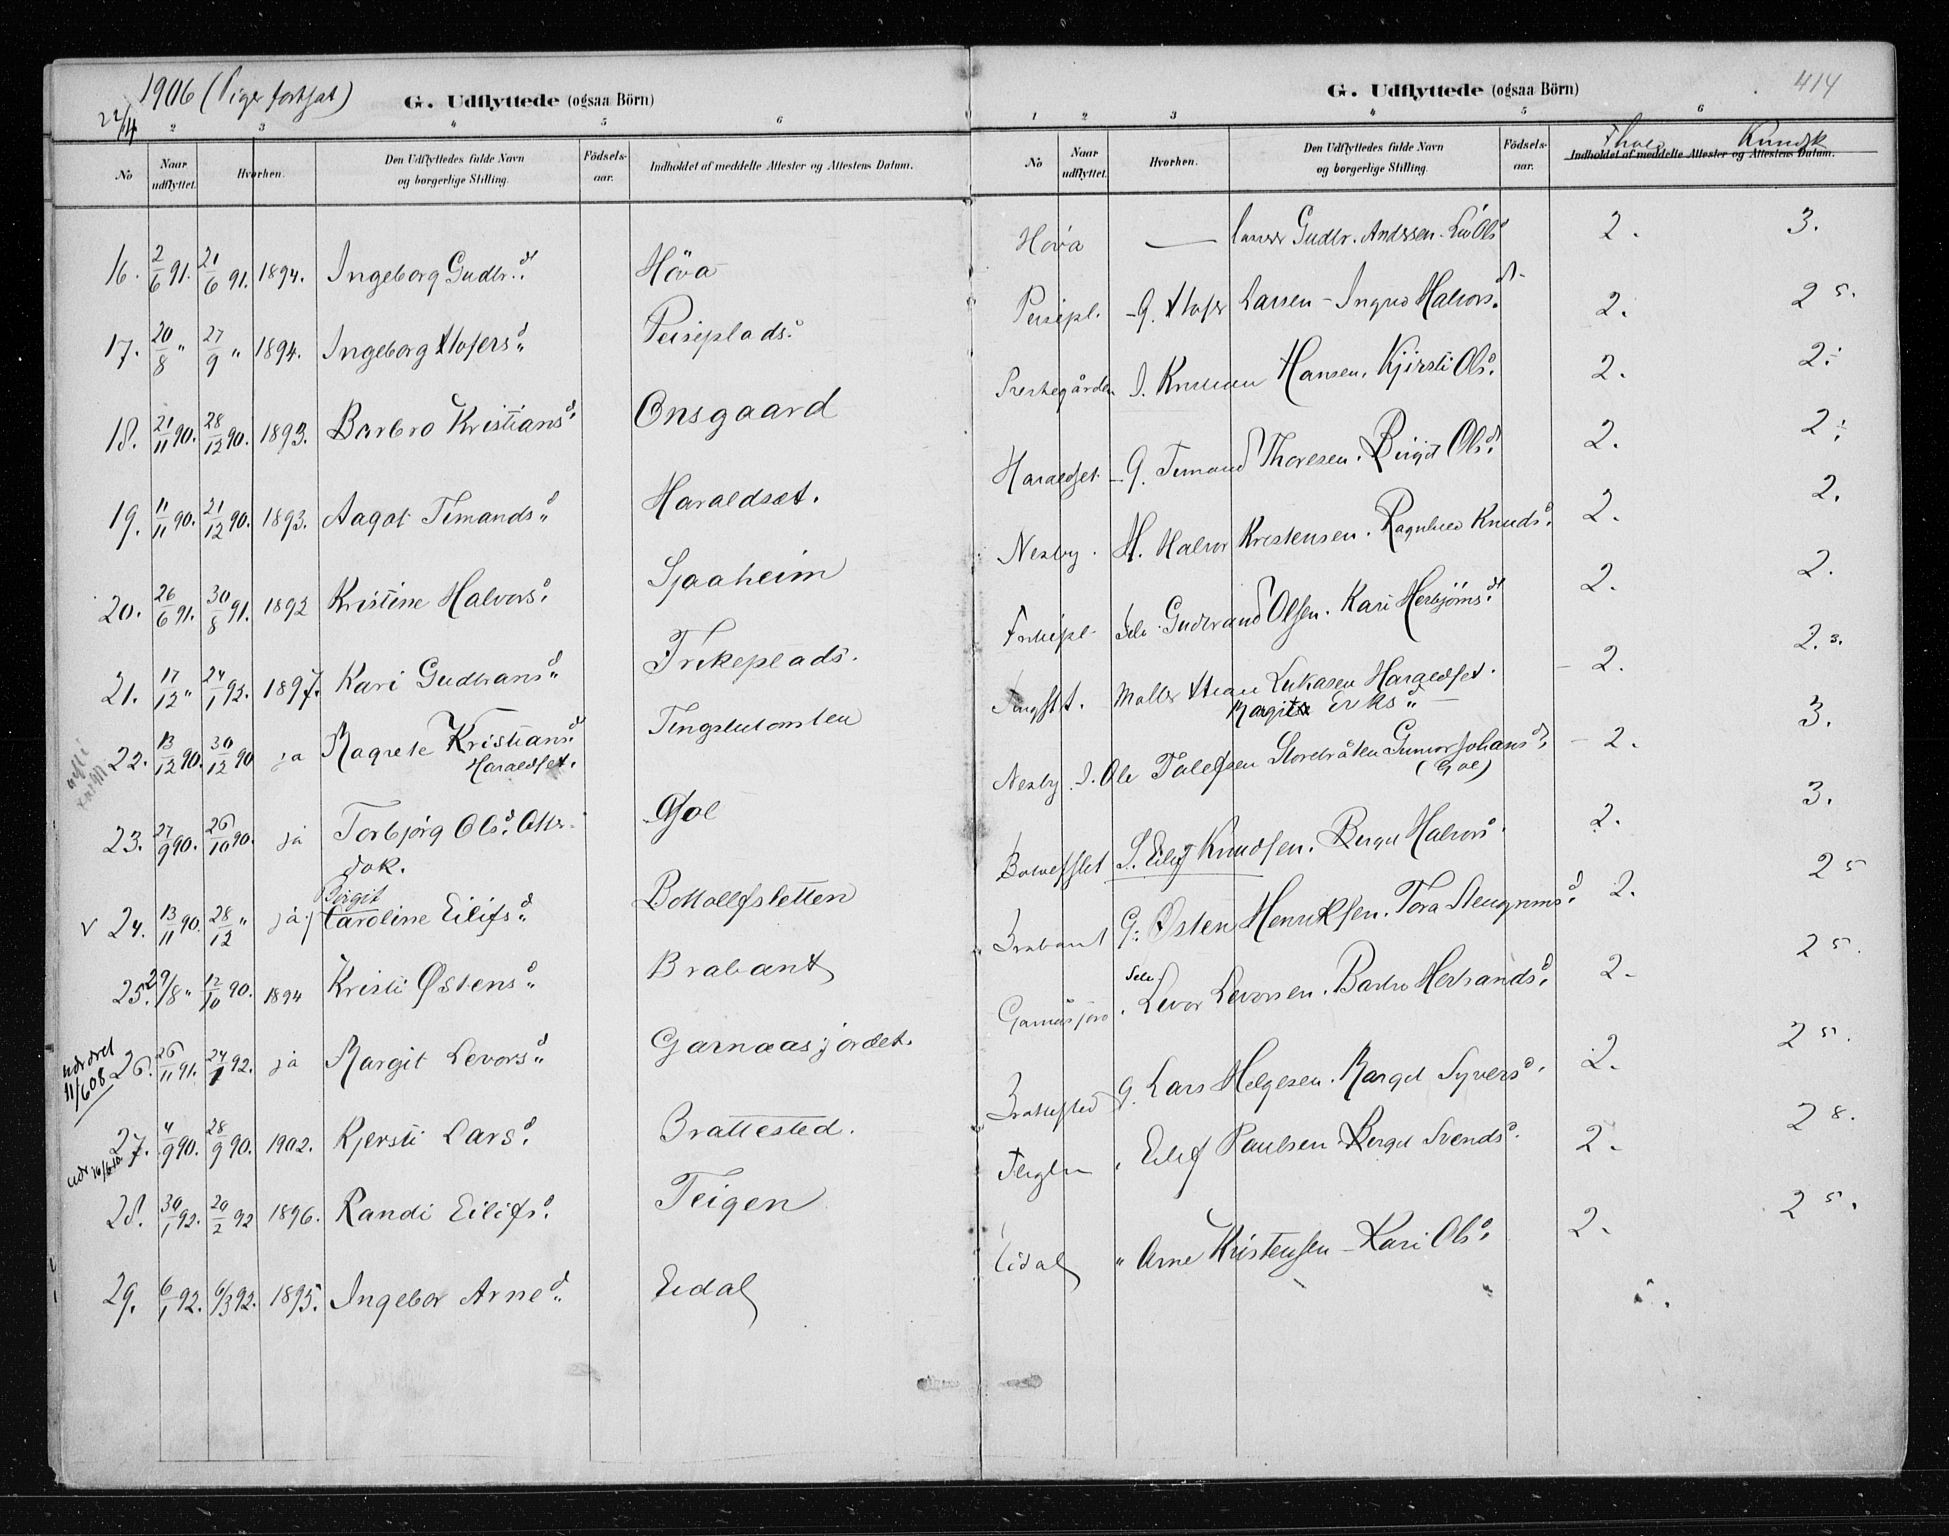 1906 (Piger fortsat)
22/4
G. Udflyttede (ogsaa Börn)
2 3 4 5 6
No
Naar udflyttet.
Hvorhen.
Den Udflyttedes fulde Navn og borgerlige Stilling.
Födsels-aar.
Indholdet af meddelte Attester og Attestens Datum.
16. 2/6 91. 21/6 91. 1894. Ingeborg Gudbr.d. Höva
17. 20/8 " 27/9 " 1894. Ingeborg Peiseplads.
18. 21/11 90. 28/12 90. 1893. Barbro Kristiansd. Onsgaard
19. 11/11 90. 21/12 90. 1893. Aagot Timandsd. Haraldset.
20. 26/6 91. 30/8 91. 1892 Kristine Halvorsd. Sjaaheim
21. 17/12 " 24/1 92. 1897. Kari Gudbransd. Frikeplads.
22. 13/12 90. 30/12 90 ja Magrete Kristiansd. Tingslutomten
Haraldset.
23. 27/9 90. 26/10 90. ja Torbjörg Olsd. Gjol
dok.
Birgit
v 24. 13/11 90. 28/12 " ja Caroline Eilifsd. Bottolfsletten
25. 29/8 " 12/10 90. 1894 Kristi Østensd. Brabant
11/608
26. 26/11 91. 24/1 92. ja Margit Levorsd. Garnaasjordet.
27. 4/9 90. 28/9 90. 1902. Kjersti Larsd. Brattested.
28. 30/1 92. 20/2 92 1896. Randi Eilifsd. Teigen
29. 6/1 92. 6/3 92. 1895. Ingebor Arned. Eidal
G. Udflyttede (ogsaa Börn)
414
1 2 3 4 5 6
No
Naar udflyttet.
Hvorhen.
Den Udflyttedes fulde Navn og borgerlige Stilling.
Födsels-aar.
Indholdet af meddelte Attester og Attestens Datum.
Kundsk
Höva — Gudbr. Andersen - Liv Olsd 2. 3.
Peisepl. - G. Larsen - Ingrid Halvorsd. 2. 2 5.
Prestegården Hansen. Kjersti Olsd. 2. 2.
Haraldset - G. Timand Thoresen. Birgit Olsd. 2. 2
Nesby. H. Halvor Kristensen. Ragnhild Knudsd. 2. 2.
Gudbrand Olsen. Kari Herbjörnsd. 2. 2.
Lukasen Haraldset. - 2. 2.3.
Margit Eriksd. —
Nesby. Ole Tolefsen Storebråten Gunvor Johansd. - 2. 3.
(Gol)
S. Eilif Knudsen. Berget Halvorsd. 2. 3.
Brabant G. Østen Henriksen. Tora Steingrimsd. 2. 2 5
Selv
Levor Levorsen. Barbro Herbrandsd. 2. 2 5.
Brattested G. Lars Helgesen. Marget Syversd. 2. 2 5.
Teigen " Eilif Paulsen Berget Svendsd. 2. 2 8.
Eidal " Arne Kristensen - Kari Olsd. 2. 2 5.